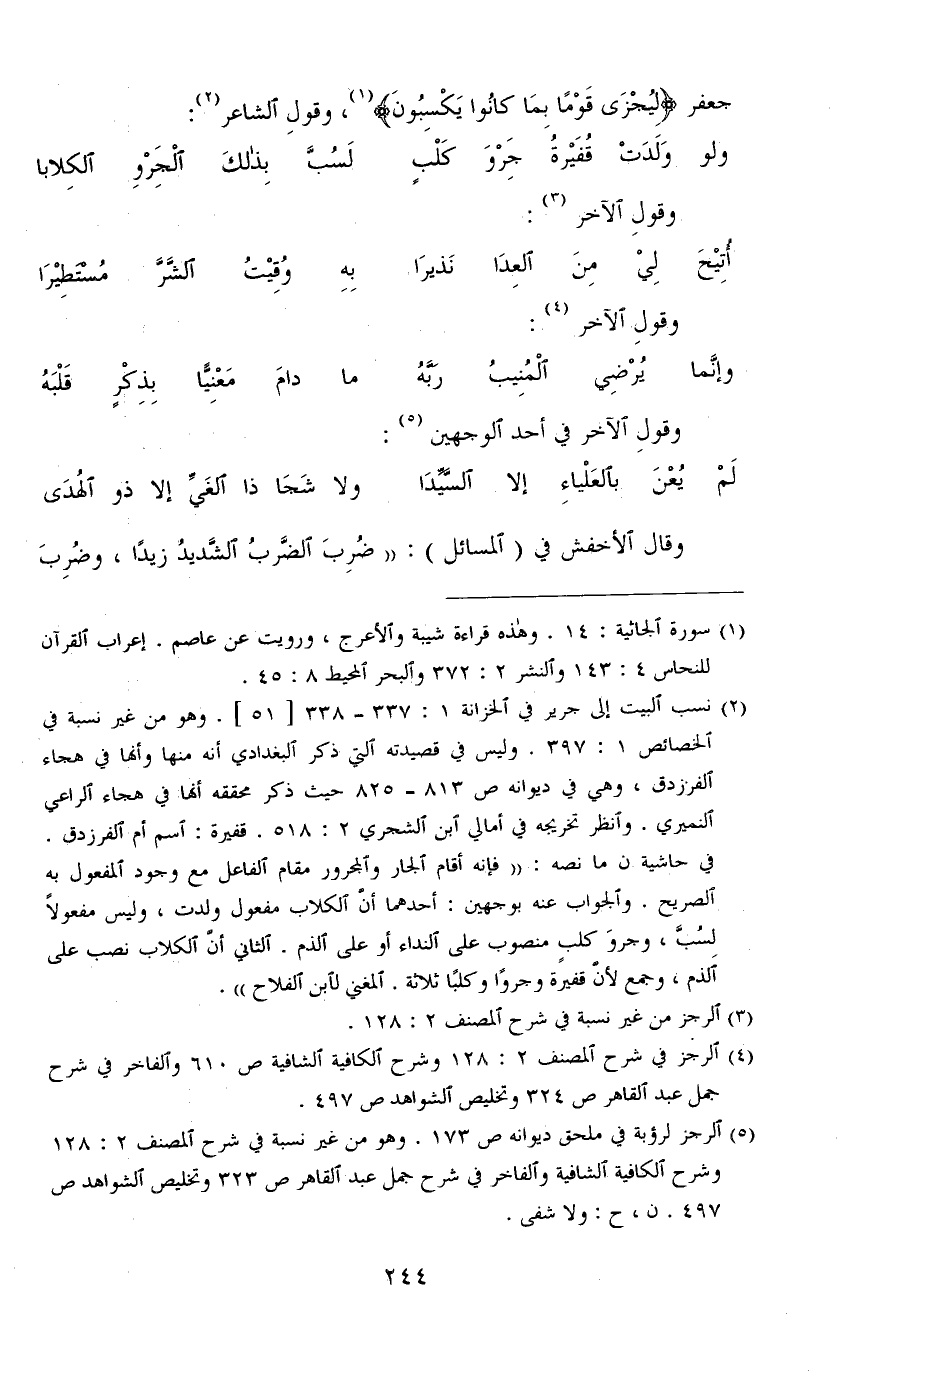 جعفر ﴿لِيُجْزَى قَوْمًا بِمَا كانُوا يَكْسِبُونَ﴾(١)، وقولِ ٱلشاعر(٢):
ولو وَلَدَتْ قُفَيْرةُ جَرْوَ كَلْبٍ لَسُبَّ بِذٰلكَ ٱلْجَرْوِ ٱلكِلابا
وقولِ ٱلآخر (٣) :
أُتِيْحَ لِيْ مِنَ ٱلعِدَا نَذيرَا بِهِ وُقِيْتُ ٱلشَّرَّ مُسْتَطِيْرَا
وقولِ ٱلآخر (٤) :
وإنَّما يُرْضِي ٱلْمُنِيبُ رَبَّهُ ما دامَ مَعْنِيًّا بِذِكْرٍ قَلْبَهُ
وقولِ ٱلآخر في أحد ٱلوجهين (٥) :
لَمْ يُعْنَ بٱلعَلْياءِ إلا ٱلسَّيِّدَا ولا شَجَا ذا ٱلغَيِّ إلا ذو ٱلهُدَى
وقال ٱلأخفش في ( ٱلمسائل ) : (( ضُرِبَ ٱلضَّربُ ٱلشَّديدُ زيدًا ، وضُرِبَ
(١) سورة ٱلجاثية : ١٤ . وهٰذه قراءة شيبة وٱلأعرج ، ورويت عن عاصم . إعراب ٱلقرآن
للنحاس ٤ : ١٤٣ وٱلنشر ٢ : ٣٧٢ وٱلبحر ٱلمحيط ٨ : ٤٥ .
(٢) نسب ٱلبيت إلى جرير في ٱلخزانة ١ : ٣٣٧ – ٣٣٨ [ ٥١ ] . وهو من غير نسبة في
ٱلخصائص ١ : ٣٩٧ . وليس في قصيدته ٱلتي ذكر ٱلبغدادي أنه منها وأنها في هجاء
ٱلفرزدق ، وهي في ديوانه ص ٨١٣ – ٨٢٥ حيث ذكر محققه أنها في هجاء ٱلراعي
ٱلنميري . وٱنظر تخريجه في أمالي ٱبن ٱلشجري ٢ : ٥١٨ . قفيرة : ٱسم أم ٱلفرزدق .
في حاشية ن ما نصه : (( فإنه أقام ٱلجار وٱلمجرور مقام ٱلفاعل مع وجود ٱلمفعول به
ٱلصريح . وٱلجواب عنه بوجهين : أحدهما أنّ ٱلكلاب مفعول ولدت ، وليس مفعولاً
لسُبَّ ، وجروَ كلبٍ منصوب على ٱلنداء أو على ٱلذم . ٱلثاني أنّ ٱلكلاب نصب على
ٱلذم ، وجمع لأنّ قفيرة وجروًا وكلبًا ثلاثة . ٱلمغني لٱبن ٱلفلاح )) .
(٣) ٱلرجز من غير نسبة في شرح ٱلمصنف ٢ : ١٢٨ .
(٤) ٱلرجز في شرح ٱلمصنف ٢ : ١٢٨ وشرح ٱلكافية ٱلشافية ص ٦١٠ وٱلفاخر في شرح
جمل عبد ٱلقاهر ص ٣٢٤ وتخليص ٱلشواهد ص ٤٩٧ .
(٥) ٱلرجز لرؤبة في ملحق ديوانه ص ١٧٣ . وهو من غير نسبة في شرح ٱلمصنف ٢ : ١٢٨
وشرح ٱلكافية ٱلشافية وٱلفاخر في شرح جمل عبد ٱلقاهر ص ٣٢٣ وتخليص ٱلشواهد ص
٤٩٧ . ن ، ح : ولا شفى .
٢٤٤